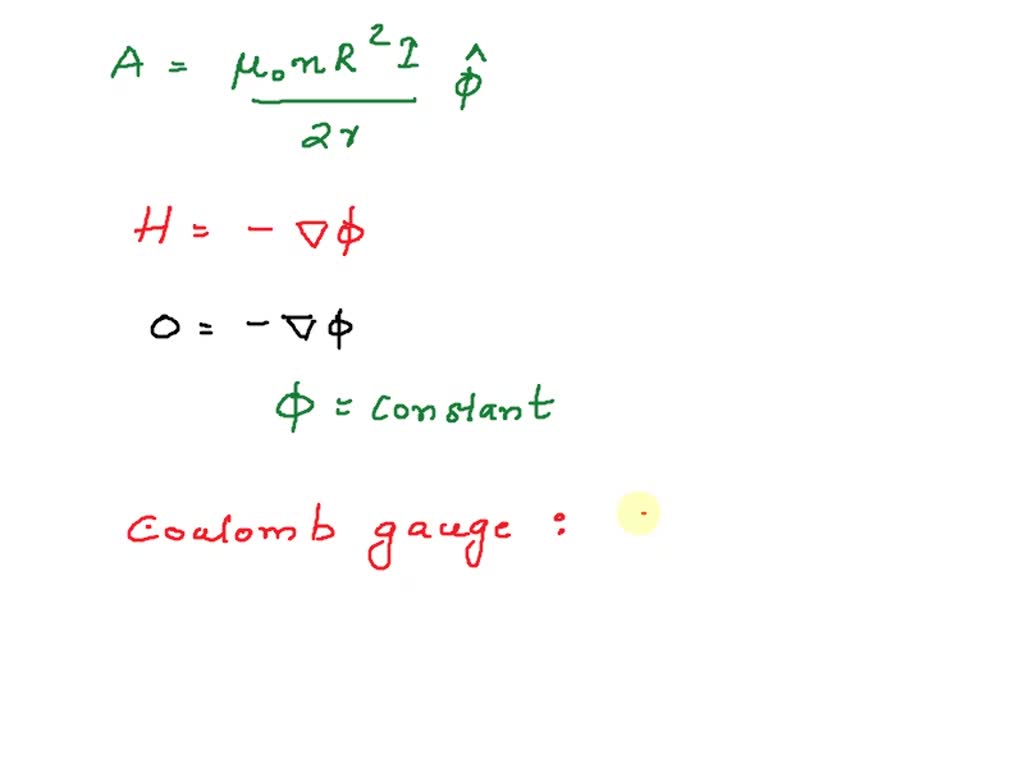 A = μ₀nR²I / 2r ϕ̂
H = - ∇ϕ
0 = - ∇ϕ
ϕ = constant
Coulomb gauge :